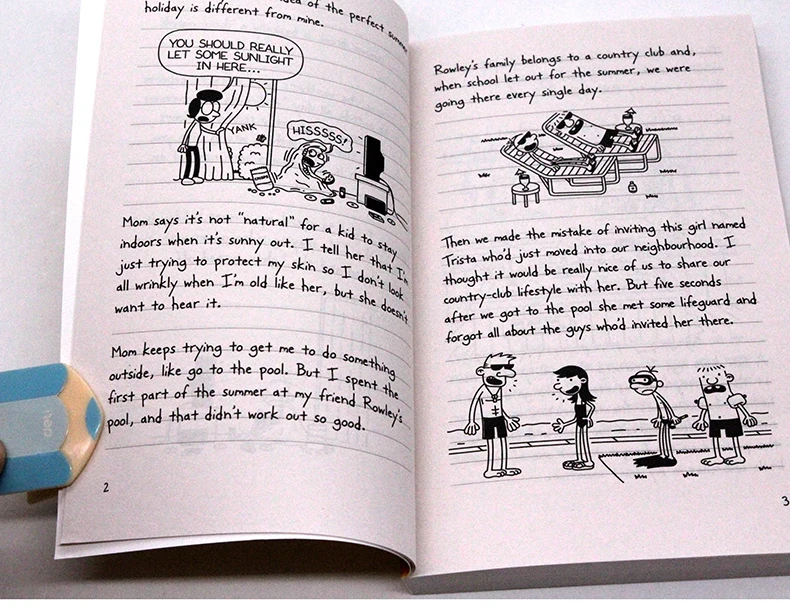 of the perfect summe
holiday is different from mine.
YOU SHOULD REALLY
LET SOME SUNLIGHT
IN HERE...
YANK
HISSSSS!
Mom says it's not "natural" for a kid to stay
indoors when it's sunny out. I tell her that I'm
just trying to protect my skin so I don't look
all wrinkly when I'm old like her, but she doesn't
want to hear it.
Mom keeps trying to get me to do something
outside, like go to the pool. But I spent the
first part of the summer at my friend Rowley's
pool, and that didn't work out so good.
2
Rowley's family belongs to a country club and,
when school let out for the summer, we were
going there every single day.
Then we made the mistake of inviting this girl named
Trista who'd just moved into our neighbourhood. I
thought it would be really nice of us to share our
country-club lifestyle with her. But five seconds
after we got to the pool she met some lifeguard and
forgot all about the guys who'd invited her there.
3